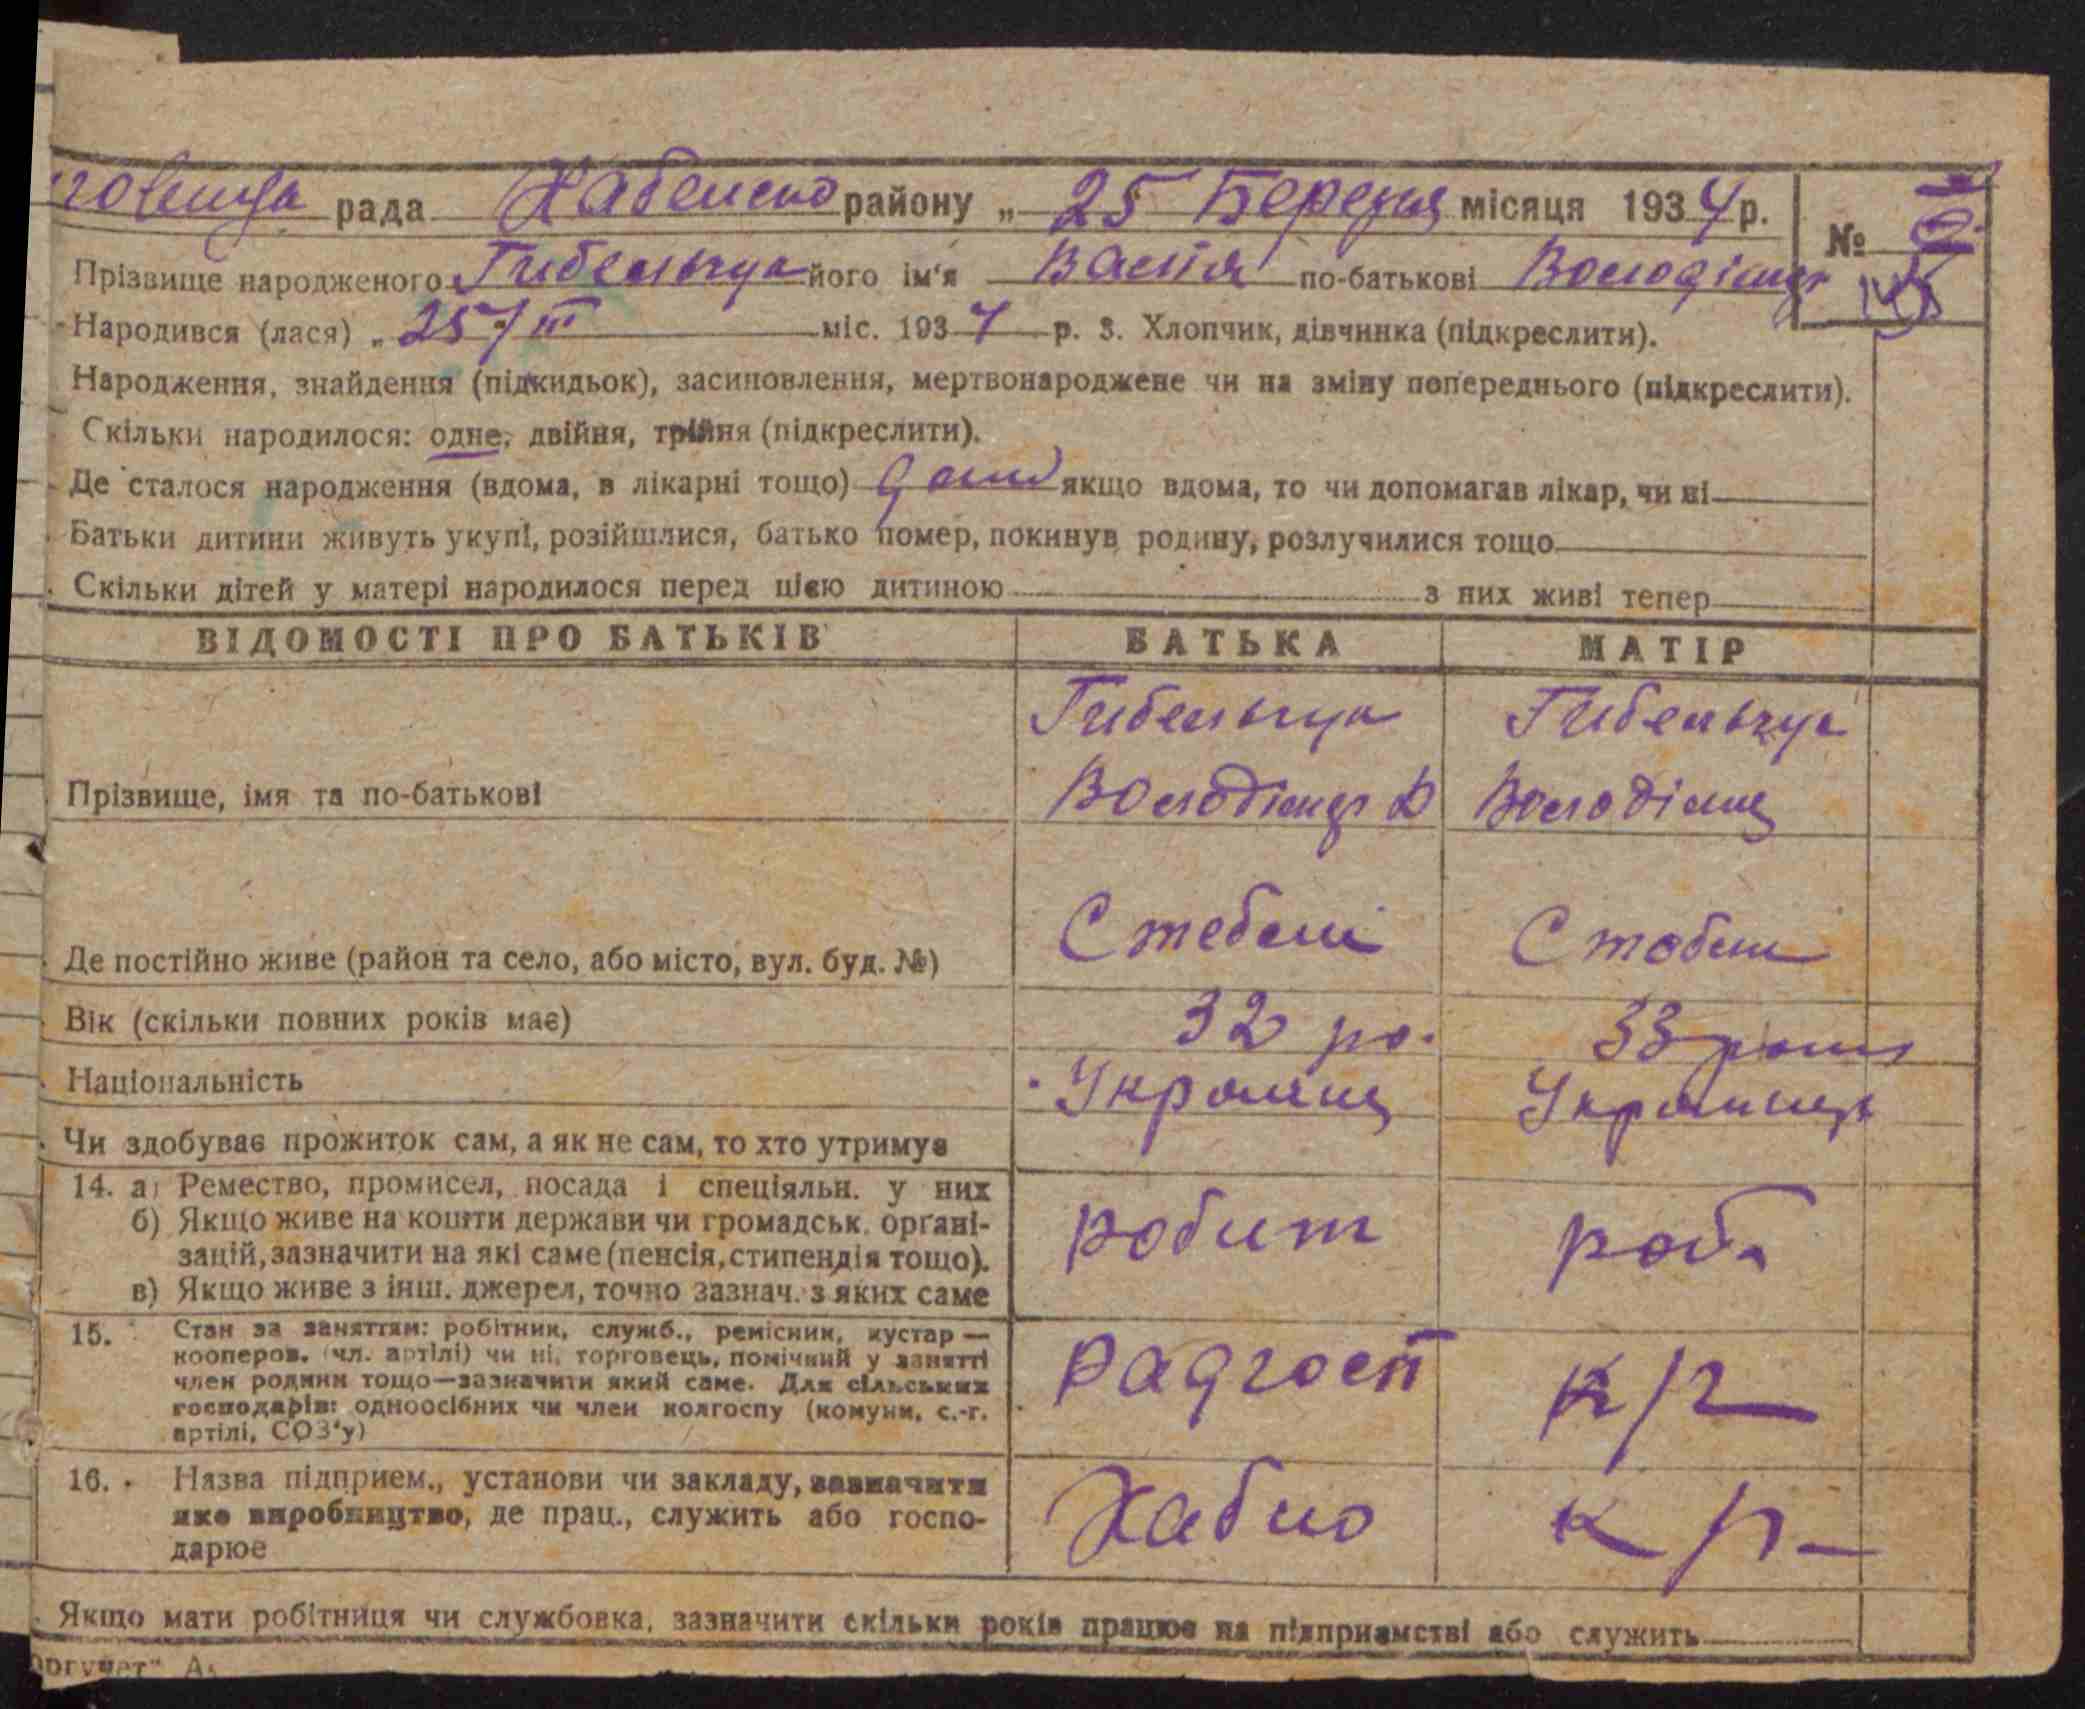 рада Хабенско району „ 25 Березня місяця 1934 р.
№
Прізвище народженого Гибельчук його ім‘я Валія по-батькові Володімир
Народився (лася) „ 25/III міс. 1934 р. 3. Хлопчик, дівчинка (підкреслити).
Народження, знайдення (підкидьок), засиновлення, мертвонароджене чи на зміну попереднього (підкреслити).
Скільки народилося: одне, двійня, трійня (підкреслити).
Де сталося народження (вдома, в лікарні тощо) якщо вдома, то чи допомагав лікар, чи ні
Батьки дитини живуть укупі, розійшлися, батько помер, покинув родину, розлучилися тощо
Скільки дітей у матері народилося перед цією дитиною з них живі тепер
ВІДОМОСТІ ПРО БАТЬКІВ БАТЬКА МАТІР
Гибельчук Гибельчук
Прізвище, імя та по-батькові Володімир
Де постійно живе (район та село, або місто, вул. буд. №) Стебелі
Вік (скільки повних років має) 32 ро. 33 роки
Національність Україниц
Чи здобуває прожиток сам, а як не сам, то хто утримує
14. а) Ремество, промисел, посада і спеціяльн. у них
б) Якщо живе на кошти держави чи громадськ. органі-
зацій, зазначити на які саме (пенсія, стипендія тощо). робит роб.
в) Якщо живе з інш. джерел, точно зазнач. з яких саме
15. Стан за заняттям: робітник, служб., ремісник, кустар —
кооперов. (чл. артілі) чи ні, торговець, помічний у занятті
член родини тощо—зазначити який саме. Для сільських
господарів: одноосібних чи член колгоспу (комуни, с.-г.
артілі, СОЗ‘у) Радгосп к/г
16. Назва підприєм., установи чи закладу, зазначити
яке виробництво, де прац., служить або госпо-
дарює Хабно
Якщо мати робітниця чи службовка, зазначити скільки років працює на підприємстві або служить